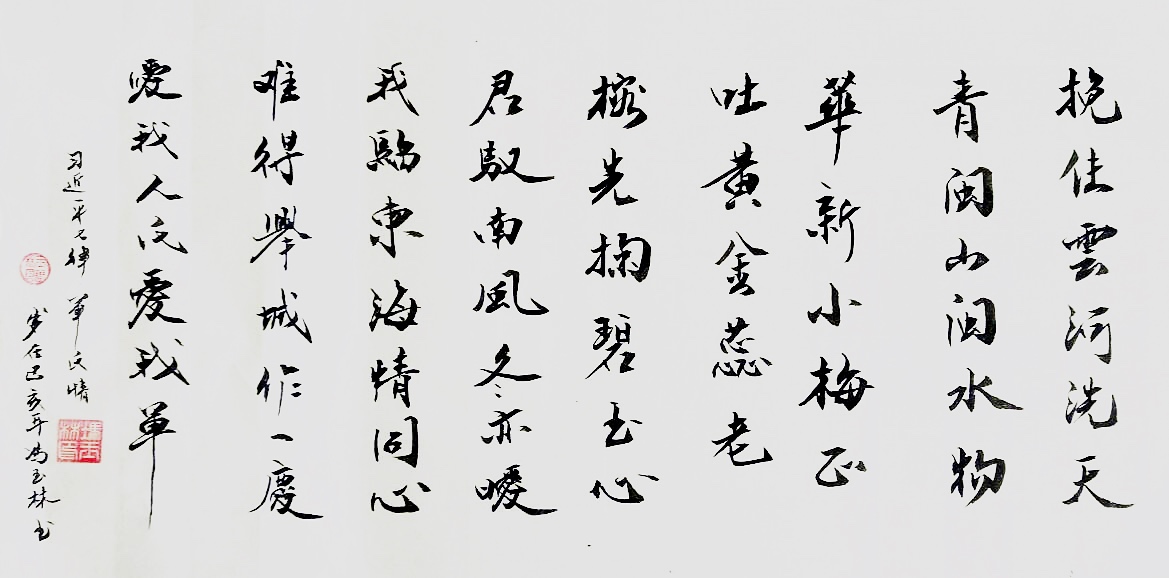 挽住雲河洗天
青闽山闽水物
華新小梅正
吐黄金蕊老
榕先掬碧玉心
君驭南風冬亦暖
我臨東海情同心
难得舉城作一慶
愛我人民愛我軍
习近平七律 軍民情
岁在己亥年冯玉林书